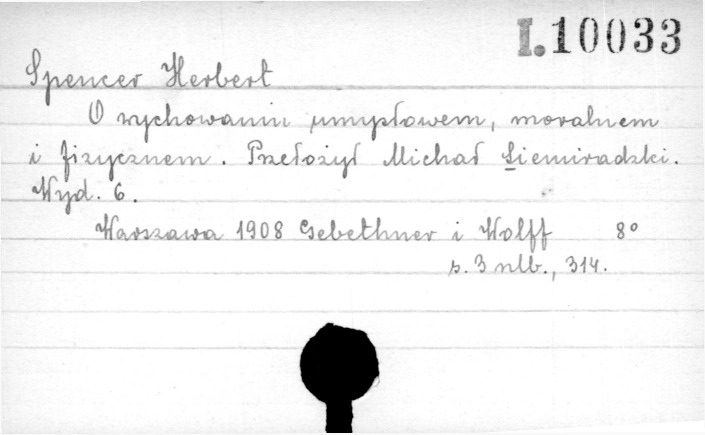 I.10033
Spencer Herbert
O wychowaniu umysłowem, moralnem
i fizycznem. Przełożył Michał Siemiradzki.
Wyd. 6.
Warszawa 1908 Gebethner i Wolff 8°
s. 3 nlb., 314.